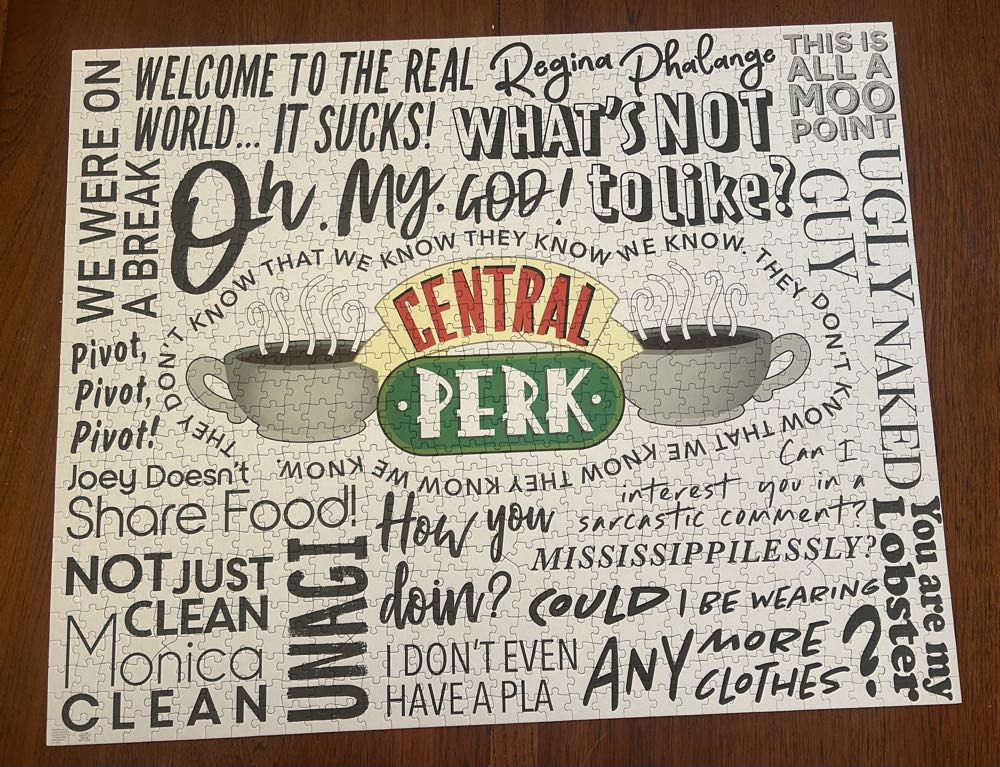 WE WERE ON
A BREAK
WELCOME TO THE REAL
WORLD... IT SUCKS!
Regina Phalange
THIS IS
ALL A
MOO
POINT
WHAT'S NOT
to like?
Oh. My. GOD!
UGLY NAKED
GUY
THEY DON'T KNOW THAT WE KNOW THEY KNOW WE KNOW.
THEY DON'T KNOW THAT WE KNOW THEY KNOW WE KNOW.
CENTRAL
PERK
Pivot,
Pivot,
Pivot!
Joey Doesn't
Share Food!
How you
doin?
Can I
interest you in a
sarcastic comment?
MISSISSIPPILESSLY?
You are my
Lobster
NOT JUST
CLEAN
Monica
CLEAN
UNAGI
I DON'T EVEN
HAVE A PLA
COULD I BE WEARING
ANY MORE
CLOTHES?